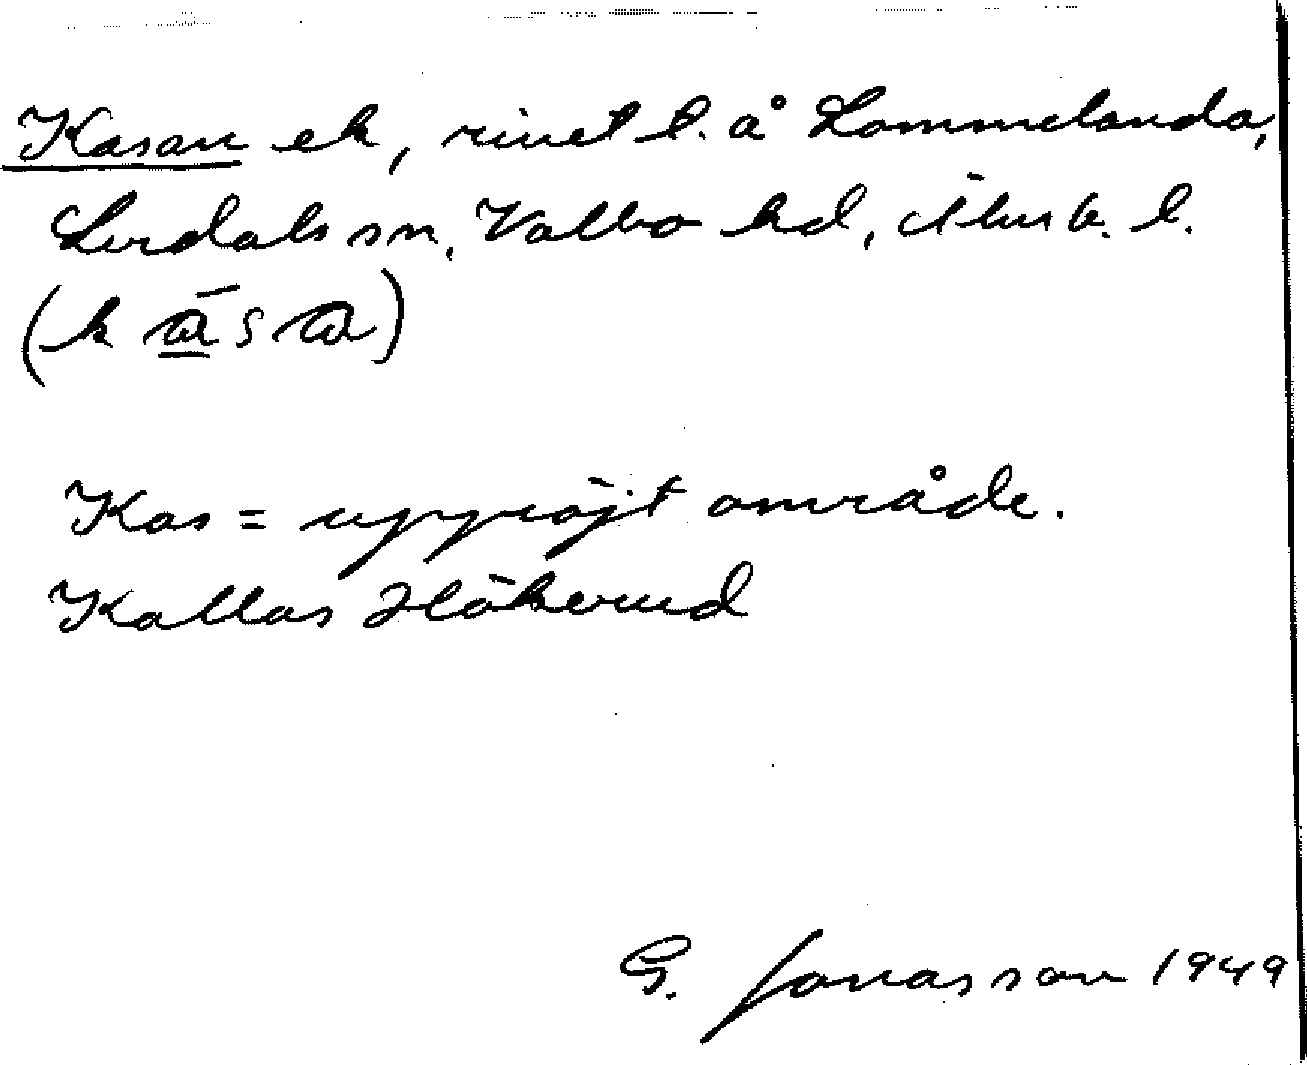 Kasan ek, rivet l. å Lommelanda,
Lerdals sn, Valbo hd, Älvsb. l.
(k a s a)
Kas = uppröjt område.
Kallas Hökerud
G. Jonasson 1949